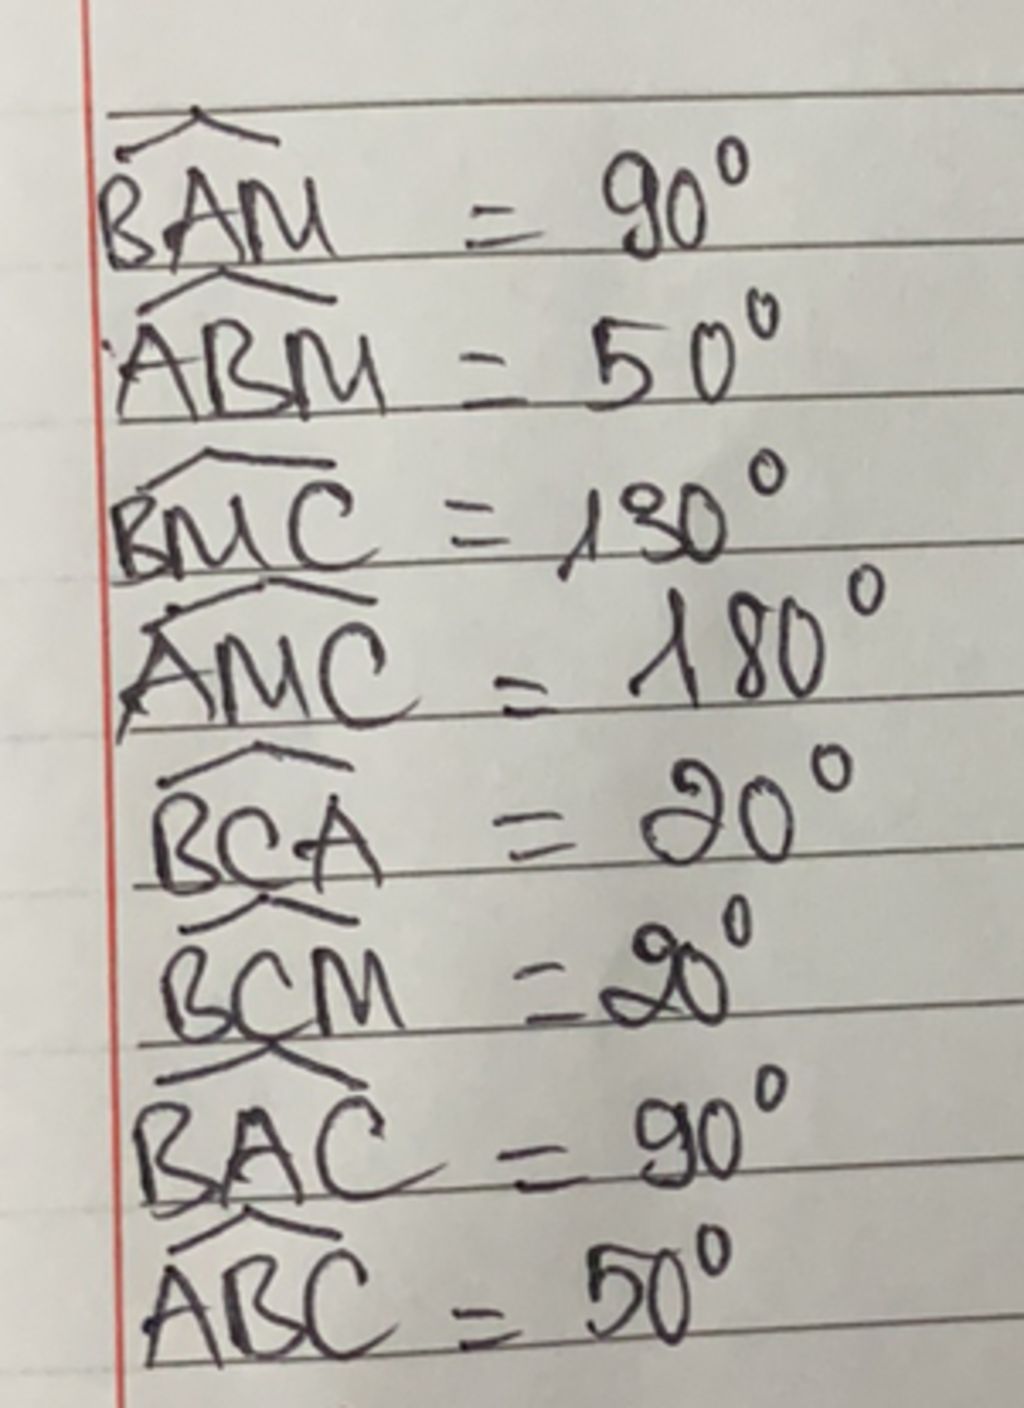 $\widehat{BAM} = 90^0$
$\widehat{ABM} = 50^0$
$\widehat{BMC} = 130^0$
$\widehat{AMC} = 180^0$
$\widehat{BCA} = 20^0$
$\widehat{BCM} = 20^0$
$\widehat{BAC} = 90^0$
$\widehat{ABC} = 50^0$